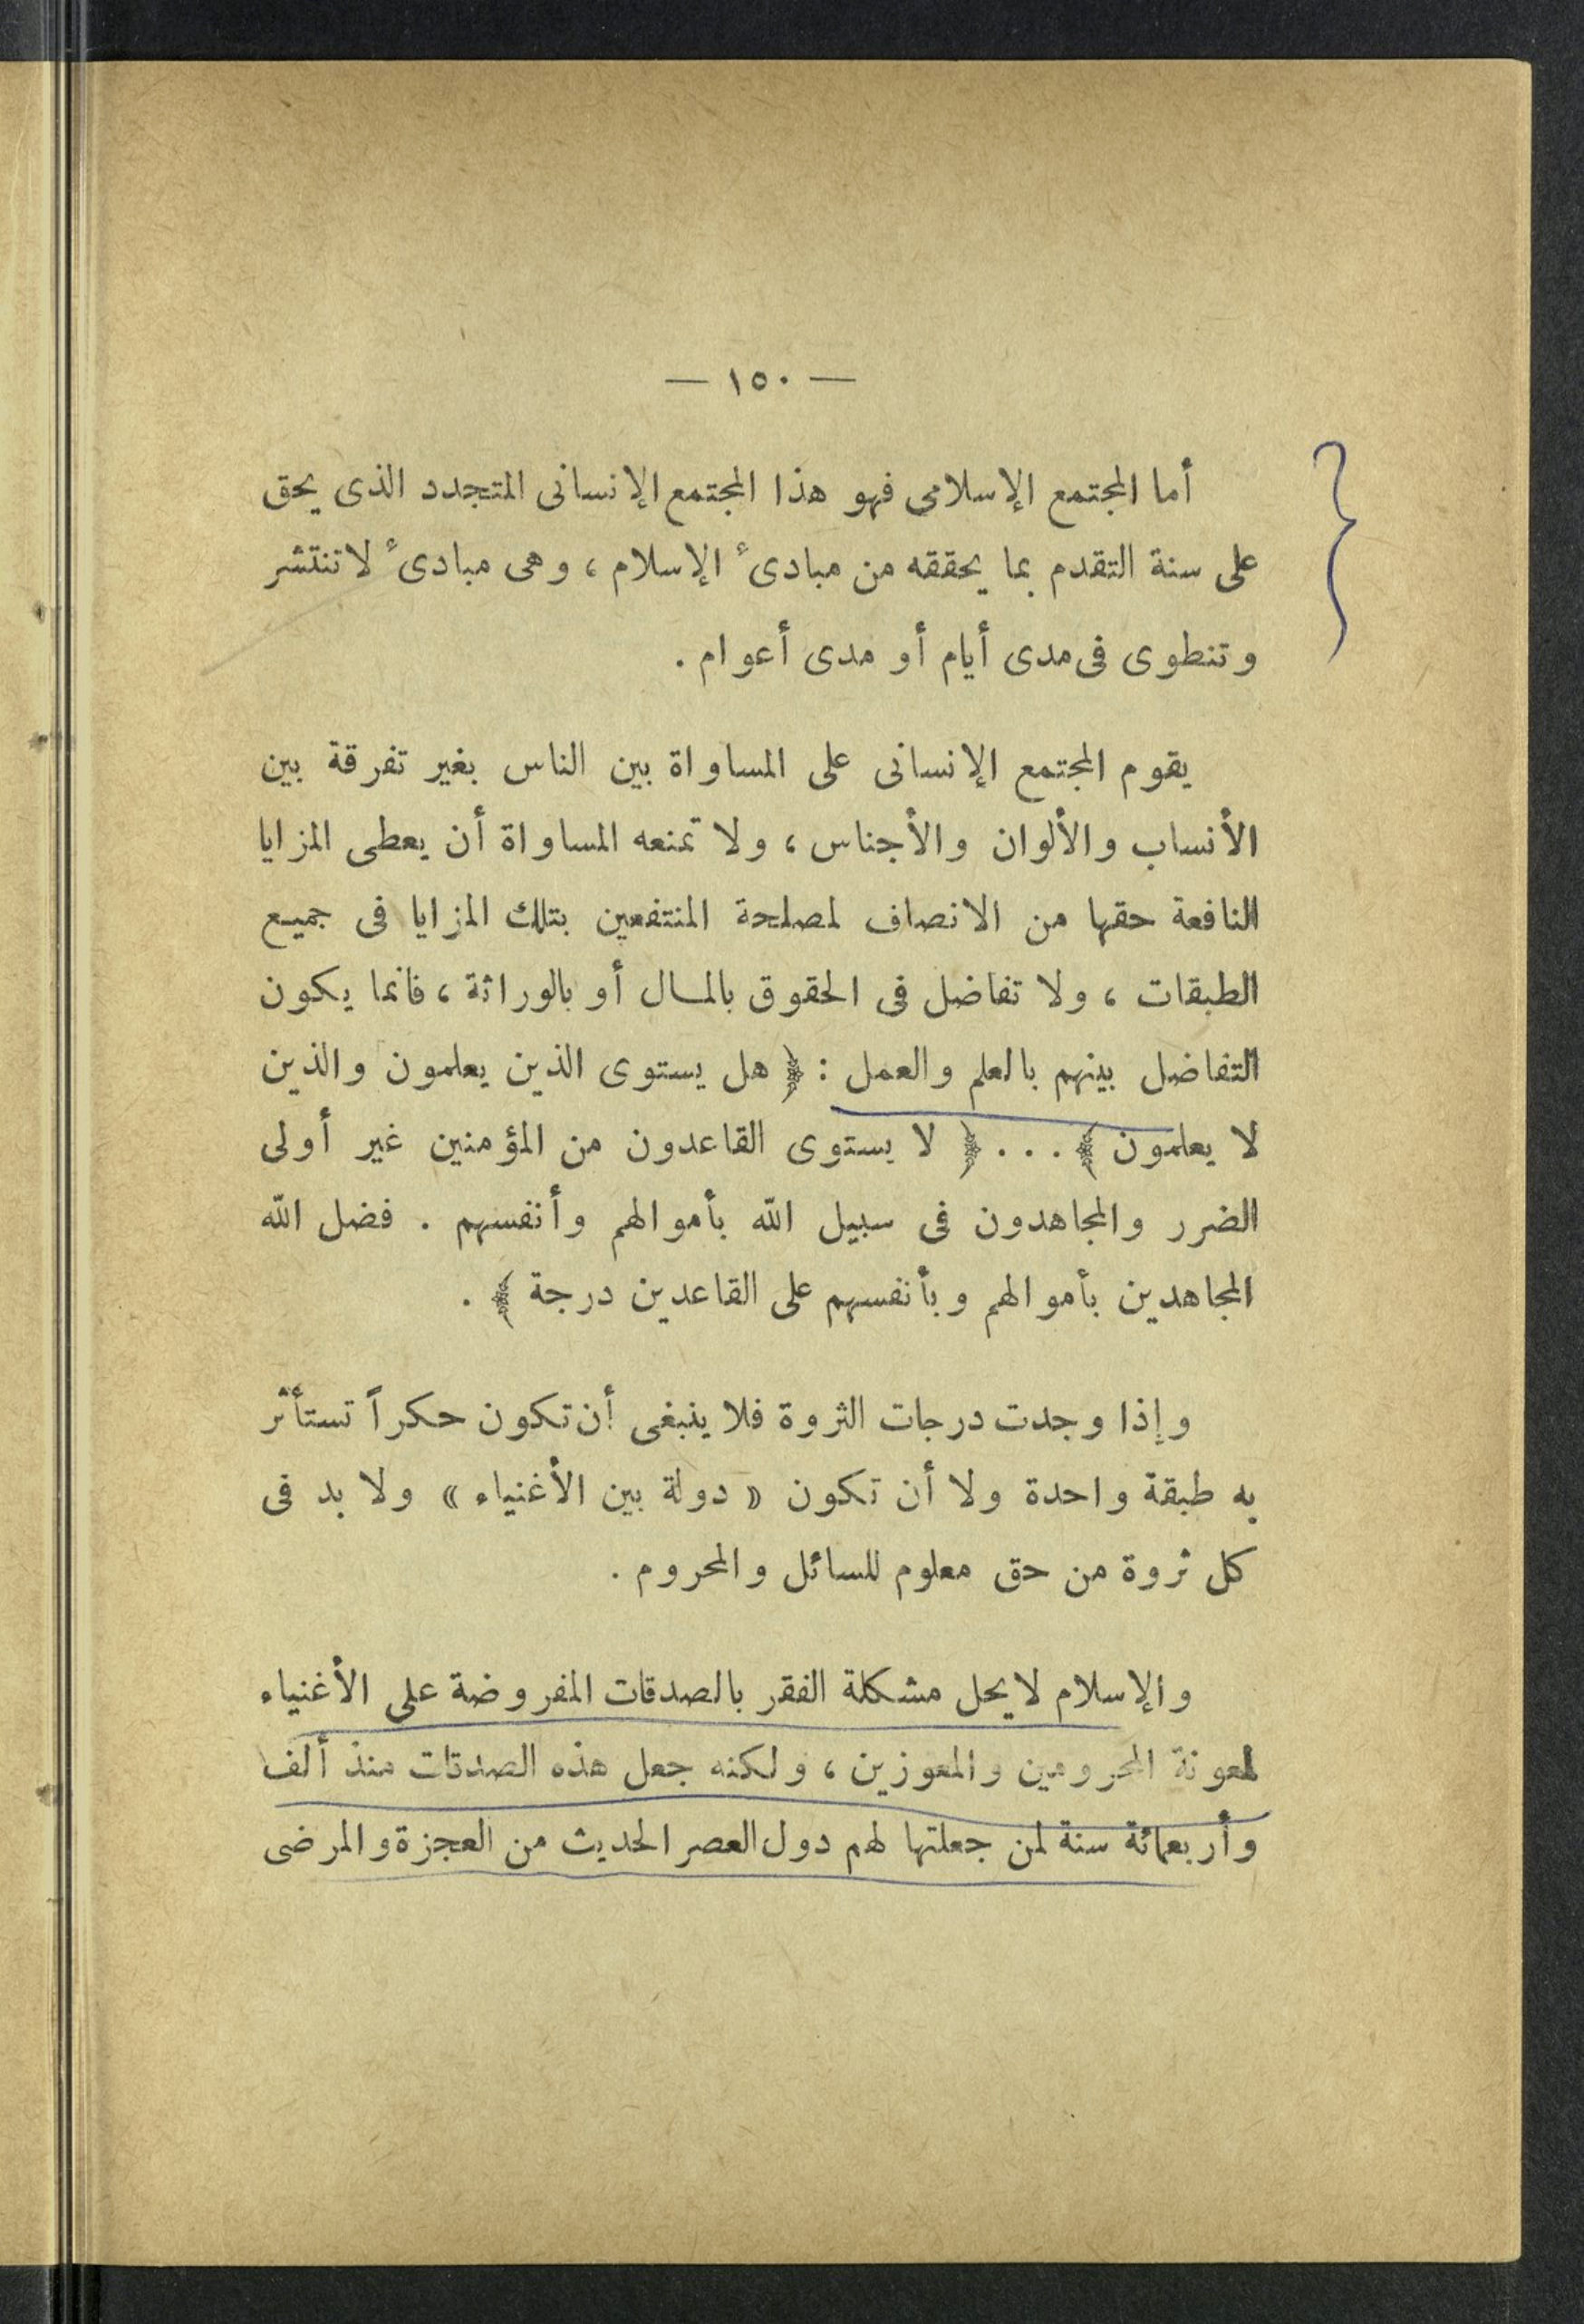 — ١٥٠ —
أما المجتمع الإسلامى فهو هذا المجتمع الإنسانى المتجدد الذى يحق
على سنة التقدم بما يحققه من مبادىء الإسلام ، وهى مبادىء لا تنتشر
وتنطوى فى مدى أيام أو مدى أعوام .
يقوم المجتمع الإنسانى على المساواة بين الناس بغير تفرقة بين
الأنساب والألوان والأجناس ، ولا تمنعه المساواة أن يعطى المزايا
النافعة حقها من الانصاف لمصلحة المنتفعين بتلك المزايا فى جميع
الطبقات ، ولا تفاضل فى الحقوق بالمال أو بالوراثة ، فانما يكون
التفاضل بينهم بالعلم والعمل : ﴿ هل يستوى الذين يعلمون والذين
لا يعلمون ﴾ . . . ﴿ لا يستوى القاعدون من المؤمنين غير أولى
الضرر والمجاهدون فى سبيل الله بأموالهم وأنفسهم . فضل الله
المجاهدين بأموالهم وبأنفسهم على القاعدين درجة ﴾ .
وإذا وجدت درجات الثروة فلا ينبغى أن تكون حكراً تستأثر
به طبقة واحدة ولا أن تكون « دولة بين الأغنياء » ولا بد فى
كل ثروة من حق معلوم للسائل والمحروم .
والإسلام لا يحل مشكلة الفقر بالصدقات المفروضة على الأغنياء
لمعونة المحرومين والمعوزين ، ولكنه جعل هذه الصدقات منذ ألف
وأربعمائة سنة لمن جعلتها لهم دول العصر الحديث من العجزة والمرضى